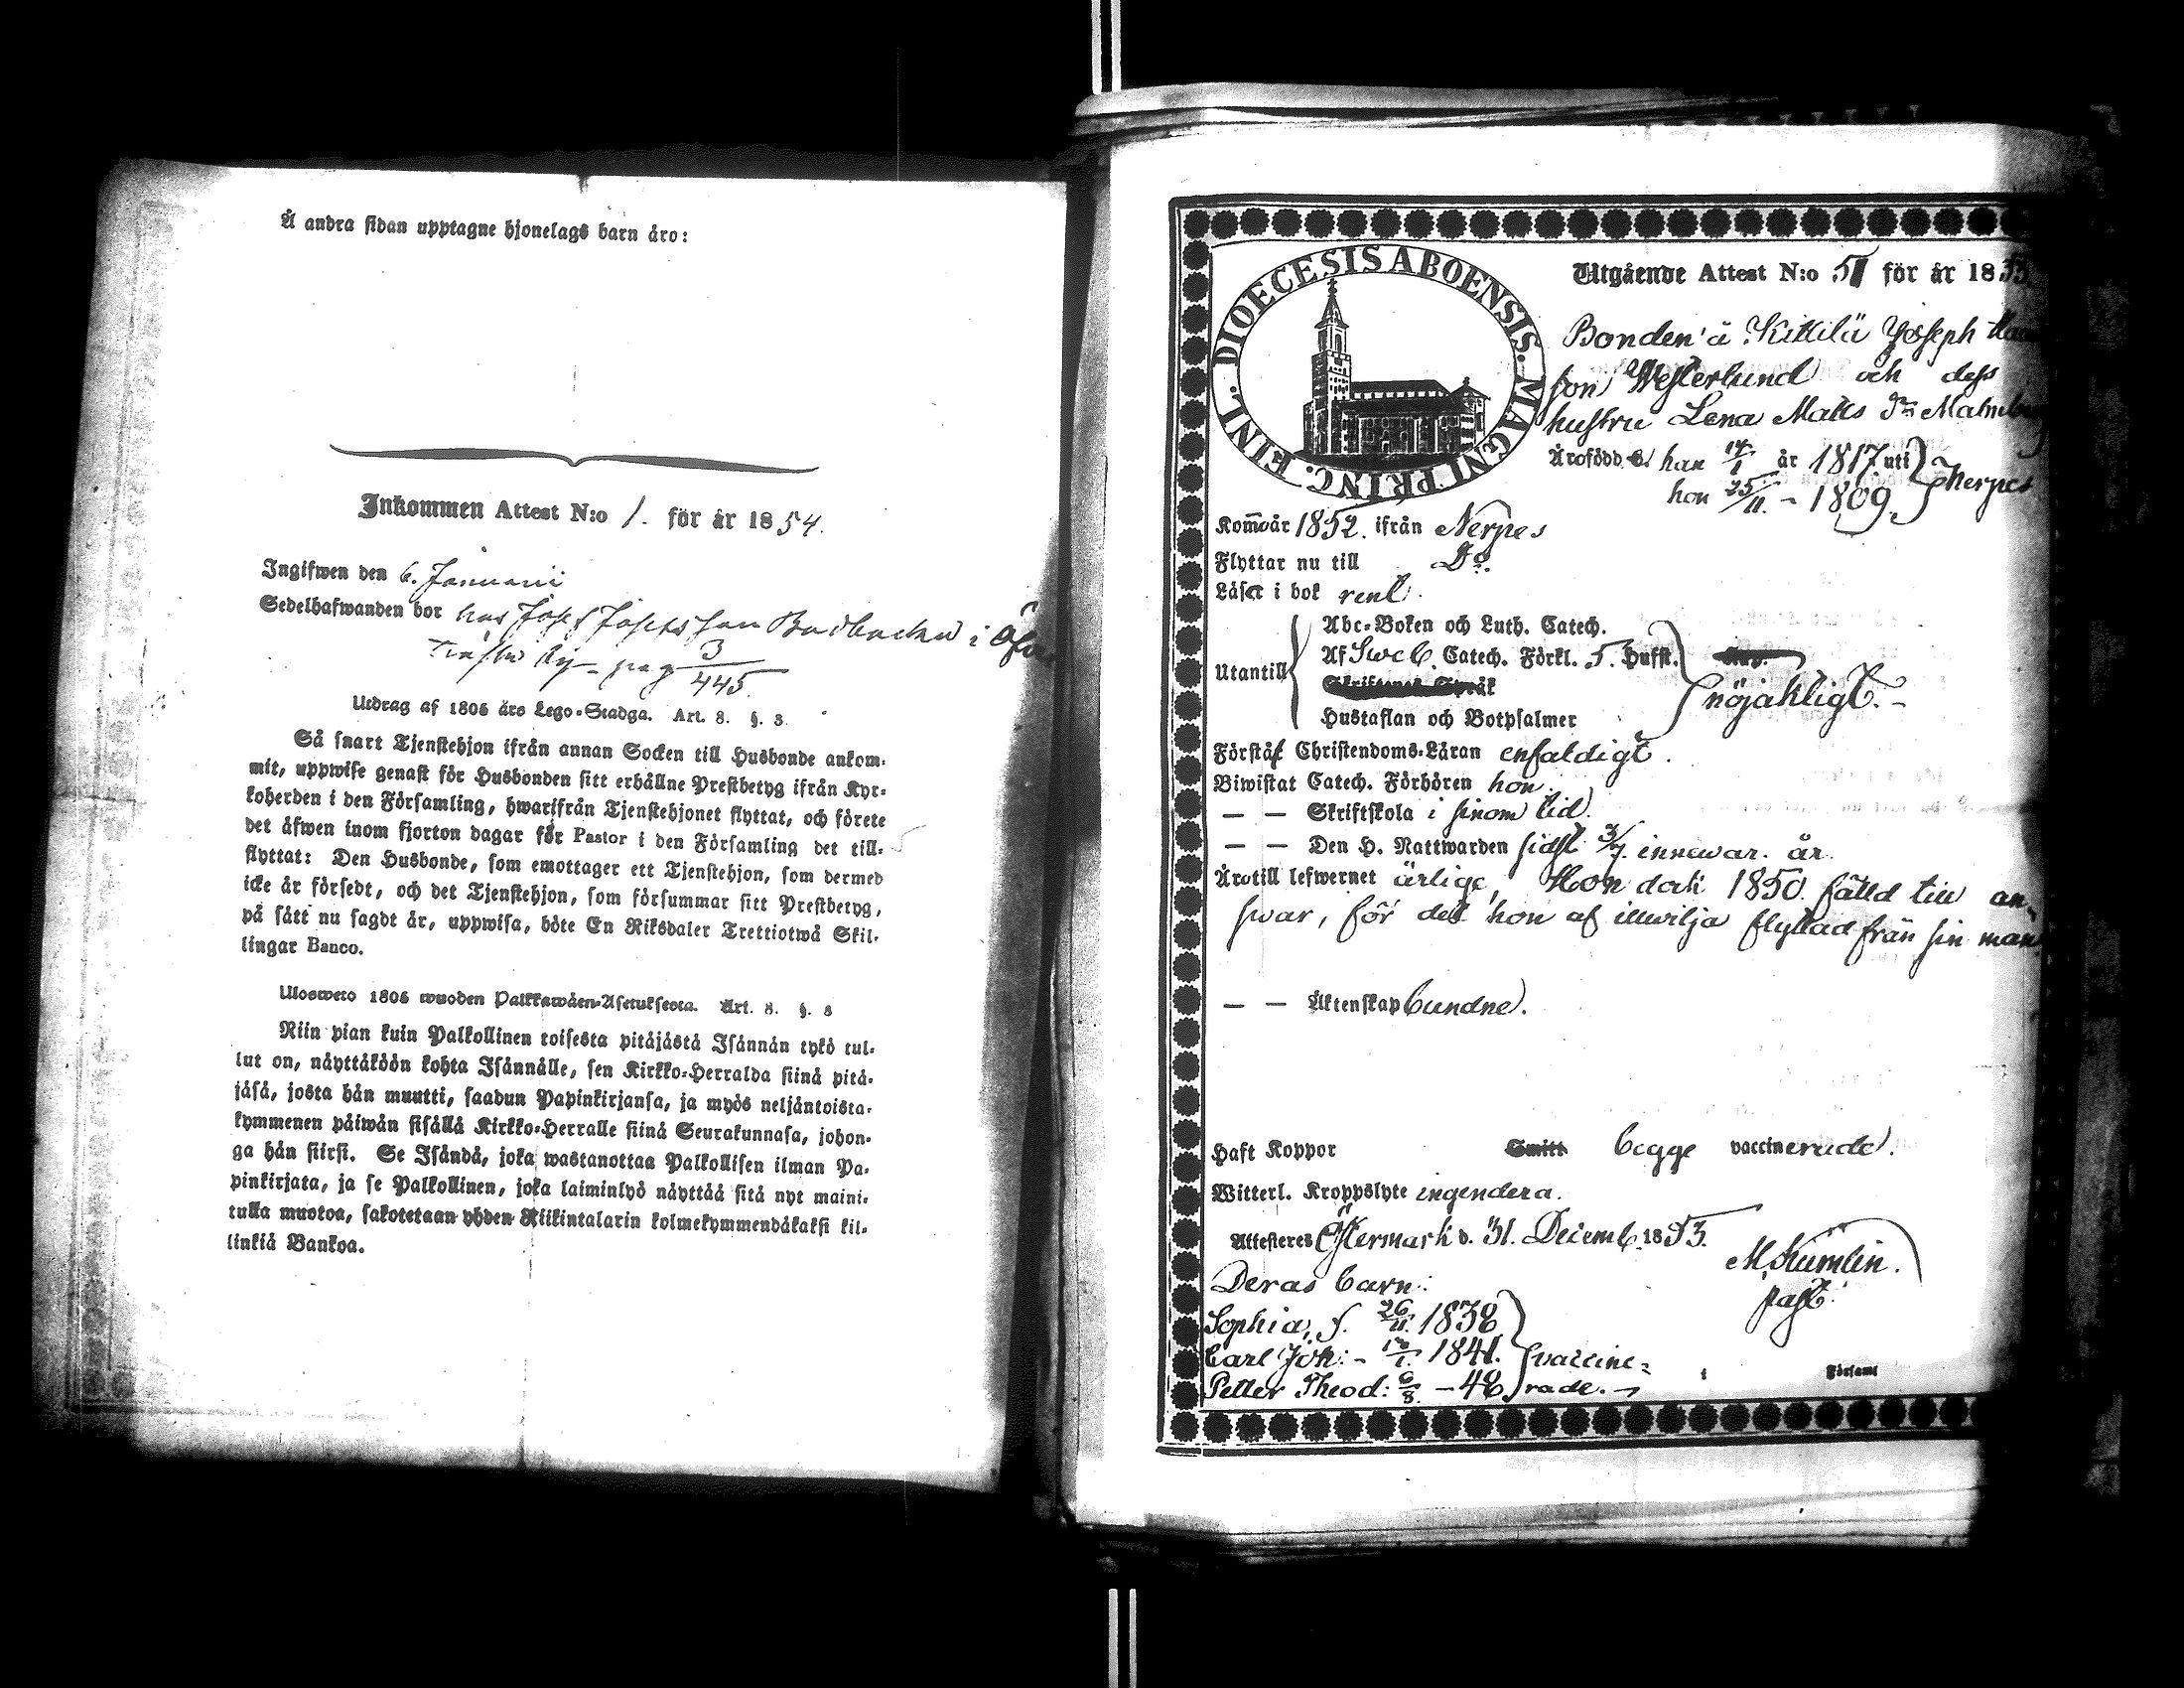 Å andra sidan upptagne hjonelags barn äro:
Inkommen Attest N:o 1. för år 1854.
Ingifwen den 6. Januarii
Sedelhafwanden bor hos Josef Josefsson i
by pag 3/445.
Utdrag af 1805 års Lego-Stadga. Art. 8. §. 3.
Så snart Tjenstehjon ifrån annan Socken till Husbonde ankom-
mit, uppwise genast för Husbonden sitt erhållne Prestbetyg ifrån Kyr-
koherden i den Församling, hwarifrån Tjenstehjonet flyttat, och förete
det äfwen inom fjorton dagar för Pastor i den Församling det till-
flyttat: Den Husbonde, som emottager ett Tjenstehjon, som dermed
icke är försedt, och det Tjenstehjon, som försummar sitt Prestbetyg,
på sätt nu sagdt är, uppwisa, böte En Riksdaler Trettiotwå Skil-
lingar Banco.
Ulosweto 1805 wuoden Palkkawäen-Asetuksesta. Art. 8. §. 3
Niin pian kuin Palkollinen toisesta pitäjästä Isännän tykö tul-
lut on, näyttäköön kohta Isännälle, sen Kirkko-Herralda siinä pitä-
jäsä, josta hän muutti, saadun Papinkirjansa, ja myös neljäntoista-
kymmenen päiwän sisällä Kirkko-Herralle siinä Seurakunnasa, johon-
ga hän siirsi. Se Isändä, joka wastanottaa Palkollisen ilman Pa-
pinkirjata, ja se Palkollinen, joka laiminlyö näyttää sitä nyt maini-
tulla muotoa, sakotetaan yhden Riikintalarin kolmekymmendäkaksi kil-
linkiä Bankoa.
DIOECESIS ABOENSIS. MAGNI PRINC. FINL.
Utgående Attest N:o 51 för år 1853
Bonden å Kittilä Joseph
son Westerlund och dess
hustru Lena Matts dr Malmberg
Äro född e han 17/1 år 1817 uti } Nerpes
hon 25/11. - 1809.
Kom år 1852. ifrån Nerpes
Flyttar nu till Do.
Läser i bok rent.
Utantill
Abc-Boken och Luth. Catech.
Af Sweb. Catech. Förkl. 5. Hufst.
Språk
nöjaktligt. -
Hustaflan och Botpsalmer
Förstå Christendoms-Läran enfaldigt.
Biwistat Catech. Förhören hon.
— — Skriftskola i sinom tid.
— — Den H. Nattwarden sidst 3/7. innewar. år.
Äro till lefwernet ärlige, Hon dock 1850. fälld till an-
swar, för det hon af illwilja flyttad från sin man
— — Äktenskap bundne.
Haft Koppor Smitt begge vaccinerade.
Witterl. Kroppslyte ingendera.
Attesteres Östermark d. 31. Decemb. 1853.
M. Kumlin.
past.
Deras barn:
Sophia, f. 26/11. 1838
Carl Joh: - 1841. } vaccine-
Petter Theod: 6/8. - 48 rade. -
Församl